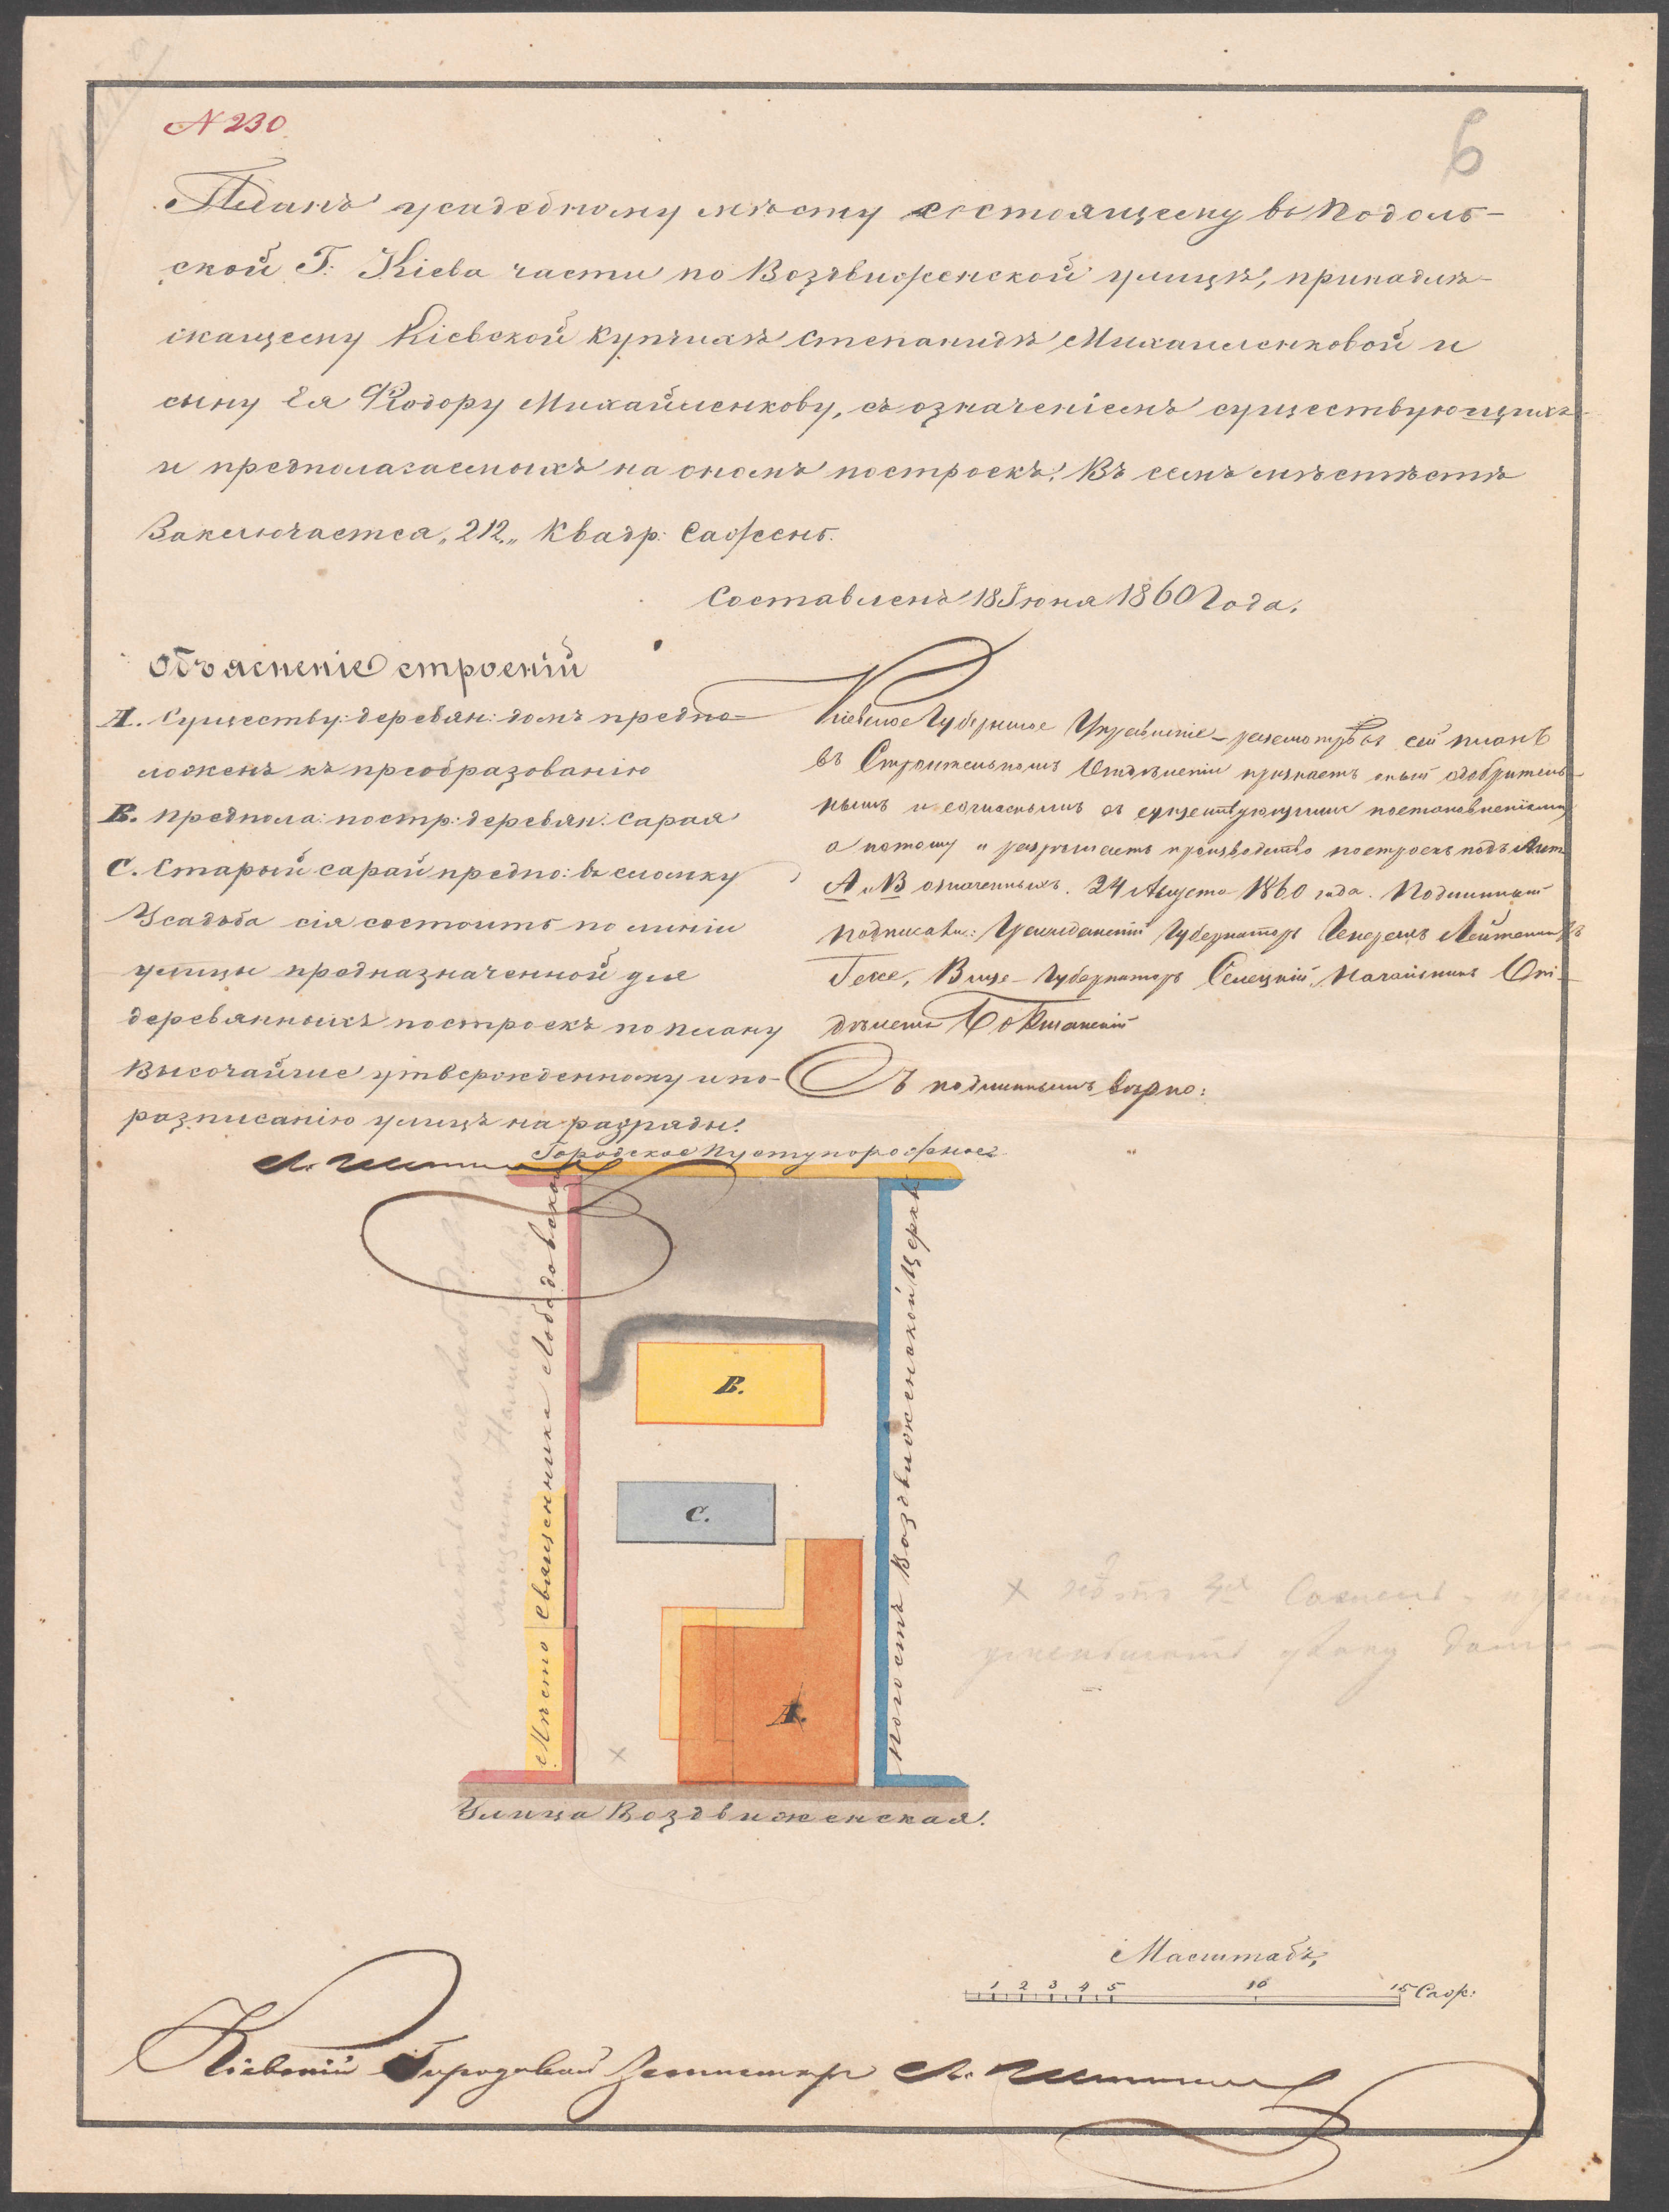 N 230
6
Планъ усадебному мѣсту состоящему въ Подоль-
ской Г: Кіева части по Воздвиженской улицѣ, принадлѣ-
жащему Кіевской купчихѣ Степанидѣ Михайленковой и
сыну Ея Ѳіодору Михайленкову, съ означеніемъ существующихъ
и предполагаемыхъ на ономъ построекъ. Въ семъ мѣстѣ
Заключается „212„ Квадр: Сажень.
Составленъ 18 Іюня 1860 Года.
Объясненіе строеній
А. Существу: деревян: домъ предпо-
ложенъ къ преобразованію
В. предпола: постр: деревян: сарая
С. Старый сарай предпо: въ сломку
Усадьба сія состоитъ по линіи
улицы предназначенной для
деревянныхъ построекъ по плану
Высочайше утвержденному и по-
разписанію улицъ на разряды.
Кіевское Губернское Управленіе разсмотрѣвъ сей планъ
въ Строительномъ Отдѣленіи признаетъ оный одобритель-
нымъ и согласнымъ съ существующими постановленіями
а потому и разрѣшаетъ производство построекъ подъ Лит
А и В означенныхъ. 24 Августа 1860 года. Подлинный
подписали: Гражданскій Губернаторъ Генералъ Лейтенантъ
Гессе, Вице-Губернаторъ Селецкій, Начальникъ От-
дѣленія
Съ подлиннымъ вѣрно:
Городское Пуступорожнее
Мѣсто Священника Лободовскаго
погостъ Воздвиженской Церкви
В.
С.
А.
×
× Сажень
уменьшить длину дома
Улица Воздвиженская.
Масштабъ,
1 2 3 4 5 10 15 Саж:
Кіевскій Городовой Землемѣръ